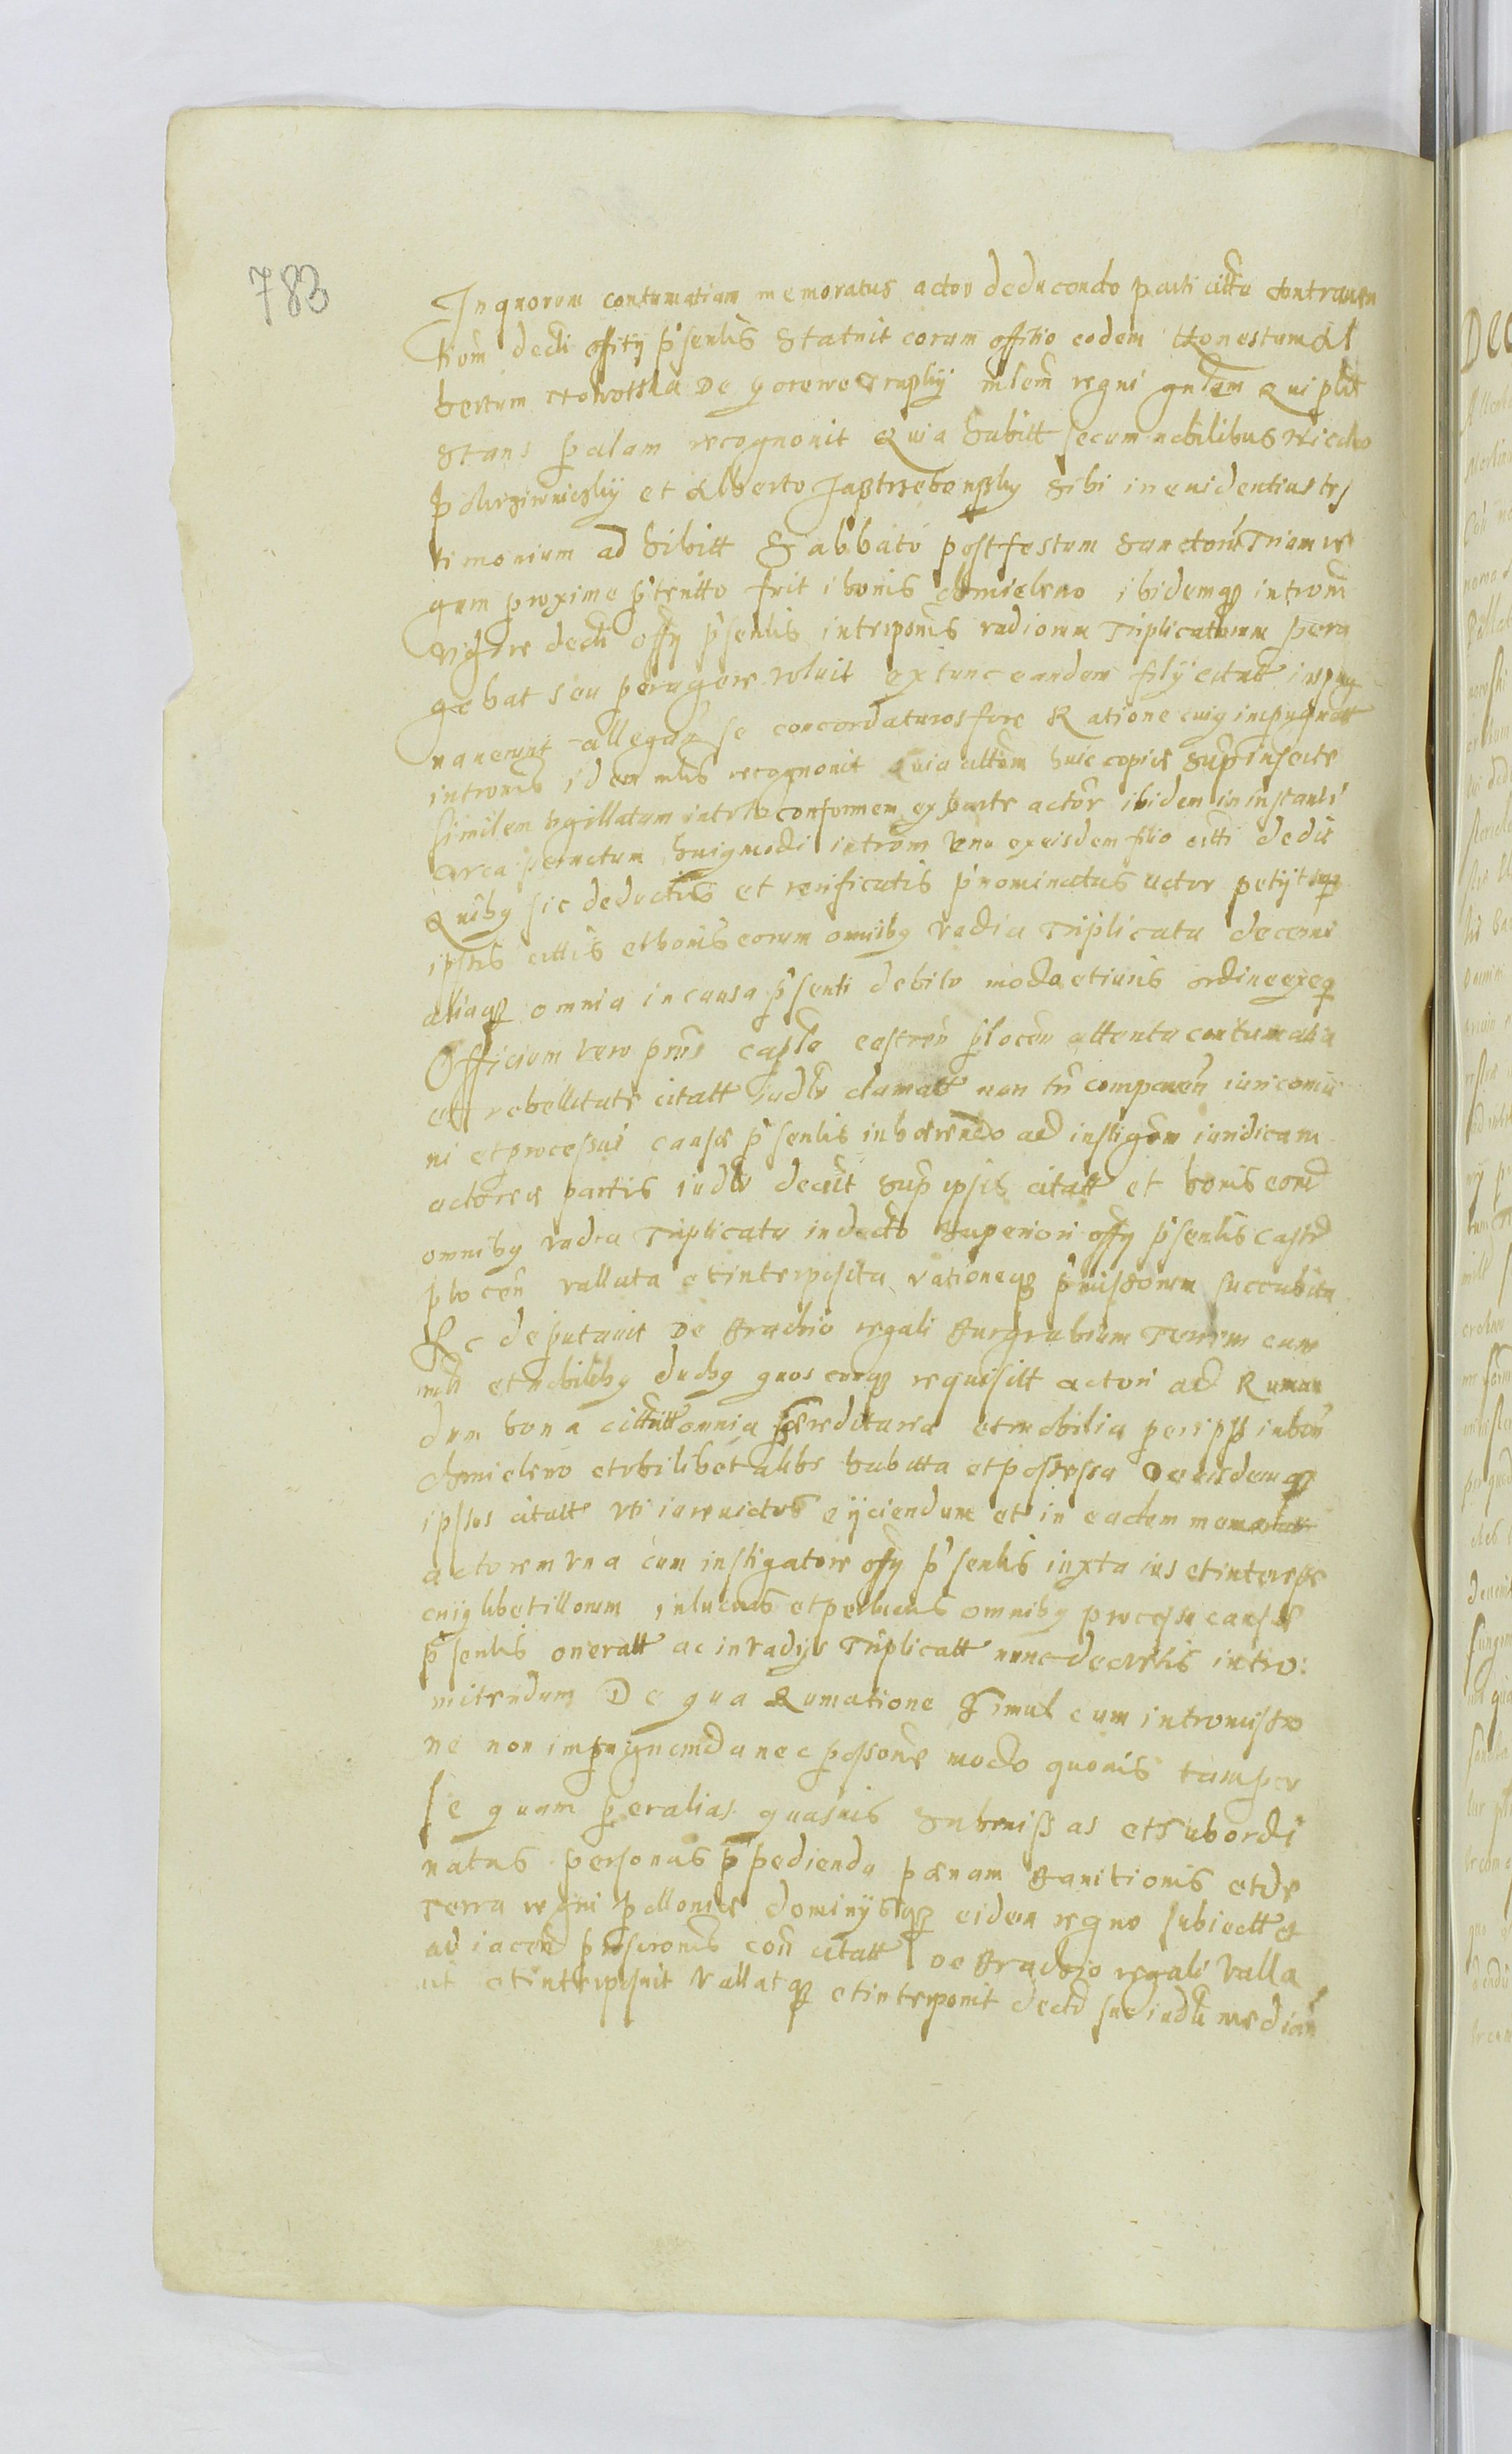 783
In quorum contumatiam memoratus actor deducendo parti citta contraven
tiom decti offitij p̃sentis Statuit coram offitio eodem Honestum Al
bertum de mlem regni gnlem Qui plr
Stans palam recognovit Quia habitt secum nobilibus
et Alberto Jastrzebonsky Sibi in evidentius tes
timonium ad hibitt Sabbato post festum Sanctorũ Trium re
gum proxime p̃teritto frit i bonis Chmieleno ibidemq3 introm
vigore decti offy p̃sentis interponis vadiorum Triplicatorum pera
gebat seu peragere voluit extunc eandem filij citatt impug
naverunt allegan̄ se concordaturos fore Ratione cuig impugnatt
intromis idem mlis recognovit Quia altom huic copie Sup̃ inserte
similem sigillatum conformem ex parte actor̃ ibidem in instanti
area peractum huigmodi introm Uno ex eisdem filio citti dedit
Quibg sic deductis et verificatis p̃nominatus actor petijt
ipsis cittis et bonis eorum omnibg vadia Triplicata decerni
aliaq3 omnia in causa p̃senti debito modo et iuris ordine exeq
Officium vero p̃ns capto castreñ plocen attenta contumatia
et rebellitate citatt iudtr clamatt non tñ comparen̄ iuri comu
ni et processui cause p̃sentis inherendo ad instigom iuridicam
actorea partis iudtr decrit Sup̃ ipsis citatt et bonis eord
omnibg vadia Triplicata in decto Superiori offy p̃sentis castr
plocen̄ vallata et interposita rationeq3 p̃missorum succubita
Et deputavit De gradio regali Burgrabium Terrem cum
mli et nobilibg duobg quos cunq3 requisitt actori ad Ruman
dum bona cittatt omnia hereditaria et mobilia per ipss in bon̄
Chmieleno et ubilibet alibi habitta et possessa De eisdemq3
ipsos citatt uti iure victos eijciendum et in eadem
actorem una cum instigatore offy p̃sentis iuxta ius et interesse
cuig libet illorum in lucris et perlucris omnibg processu cause
p̃sentis oneratt ac in vadijs Triplicatt nunc decretis intro:
mitendum De qua Rumatione Simul cum intromissio
ne non impugnanda nec possone modo quovis tam per
se quam per alias quasvis Submissas et Subordi
natas personas p̃pedienda pœnam banitionis et de
terra regni Pollonie dominijsq3 eidem regno subiectt et
ad iacen̄ con̄ citatt de gradio regali Valla
vit et interposuit Vallatq3 et interponit decto suo iudtr median̄